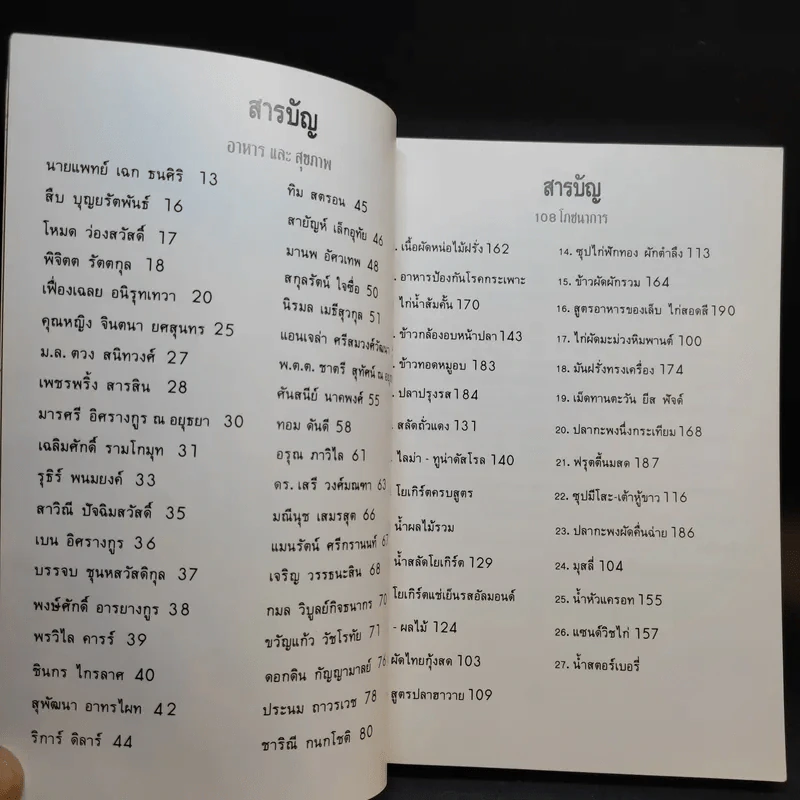 สารบัญ
อาหาร และ สุขภาพ
นายแพทย์ เฉก ธนศิริ 13
สืบ บุญยรัตพันธ์ 16
โหมด ว่องสวัสดิ์ 17
พิจิตต รัตตกุล 18
เฟื่องเฉลย อนิรุทเทวา 20
คุณหญิง จินตนา ยศสุนทร 25
ม.ล. ตวง สนิทวงศ์ 27
เพชรพริ้ง สารสิน 28
มารศรี อิศรางกูร ณ อยุธยา 30
เฉลิมศักดิ์ รามโกมุท 31
รุธิร์ พนมยงค์ 33
สาวิณี ปัจฉิมสวัสดิ์ 35
เบน อิศรางกูร 36
บรรจบ ชุนหสวัสดิกุล 37
พงษ์ศักดิ์ อารยางกูร 38
พรวิไล คารร์ 39
ชินกร ไกรลาศ 40
สุพัฒนา อาทรไผท 42
ริการ์ ดิลาร์ 44
ทิม สตรอน 45
สายัญห์ เล็กอุทัย 46
มานพ อัศวเทพ 48
สกุลรัตน์ ใจซื่อ 50
นิรมล เมธีสุวกุล 51
แอนเจล่า ศรีสมวงศ์วัฒนา
พ.ต.ต. ชาตรี สุทัศน์ ณ
ศันสนีย์ นาคพงศ์ 55
ทอม ดันดี 58
อรุณ ภาวิไล 61
ดร. เสรี วงศ์มณฑา 63
มณีนุช เสมรสุต 66
แมนรัตน์ ศรีกรานนท์ 67
เจริญ วรรธนะสิน 68
กมล วิบูลย์กิจธนากร 70
ขวัญแก้ว วัชโรทัย 71
ดอกดิน กัญญามาลย์ 76
ประนม ถาวรเวช 78
ชาริณี กนกโชติ 80
สารบัญ
108 โภชนาการ
. เนื้อผัดหน่อไม้ฝรั่ง 162
. อาหารป้องกันโรคกระเพาะ
ไก่น้ำส้มคั้น 170
. ข้าวกล้องอบหน้าปลา 143
. ข้าวทอดหมูอบ 183
. ปลาปรุงรส 184
. สลัดถั่วแดง 131
. ไลม่า - ทูน่าดัสโรล 140
. โยเกิร์ตครบสูตร
น้ำผลไม้รวม
น้ำสลัดโยเกิร์ต 129
โยเกิร์ตแช่เย็นรสอัลมอนด์
- ผลไม้ 124
ผัดไทยกุ้งสด 103
สูตรปลาฮาวาย 109
14. ซุปไก่ฟักทอง ผักตำลึง 113
15. ข้าวผัดผักรวม 164
16. สูตรอาหารของเล็บ ไก่สอดสี 190
17. ไก่ผัดมะม่วงหิมพานต์ 100
18. มันฝรั่งทรงเครื่อง 174
19. เม็ดทานตะวัน ยีส ฟัจด์
20. ปลากะพงนึ่งกระเทียม 168
21. ฟรุตตี้นมสด 187
22. ซุปมิโสะ-เต้าหู้ขาว 116
23. ปลากะพงผัดคื่นฉ่าย 186
24. มุสลี่ 104
25. น้ำหัวแครอท 155
26. แซนด์วิชไก่ 157
27. น้ำสตอร์เบอรี่